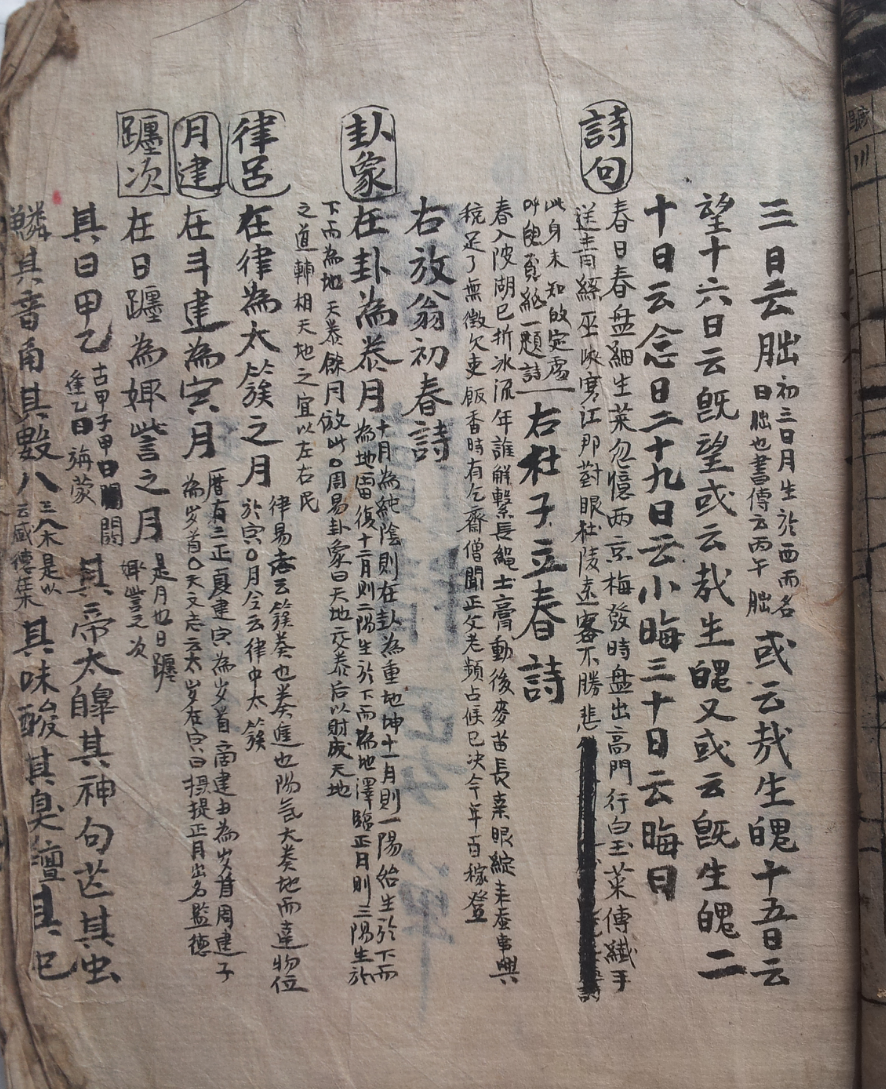 三日云朏初三日月生於西而名曰朏也書傳云丙午朏或云哉生魄十五日云
望十六日云旣望或云哉生魄又或云旣生魄二
十日云念日二十九日云小晦三十日云晦日
詩句
春日春盤細生菜忽憶兩京梅發時盘出高門行白玉菜傳纎手
送青絲巫峽寒江那對眼杜陵遠客不勝悲
此身未知皈定處
呼兒覔紙一題詩
右杜子立春詩
春入陂湖已折冰流年誰觧繫長繩土膏動後麥苗長桒眼綻来蚕事興
税足了無徵欠吏飯香時有乞齋僧閒正父老頻占候已决今年百稼登
右放翁初春詩
卦象
在卦為泰月
十月為純陰則在卦為重地坤十一月則一陽始生於下而
為地雷復十二月則二陽生於下而為地澤臨正月則三陽生於
下而為地天泰餘月倣此〇周易卦象曰天地交泰后以財成天地
之道輔相天地之宜以左右民
律呂
在律為太簇之月
律易志云簇奏也奏進也陽气大奏地而達物位
於寅〇月令云律中太簇
月建
在斗建為寅月
曆有三正夏建寅為岁首商建丑為岁首周建子
為岁首〇天文志云太岁在寅曰摂提正月出名監德
躔次
在日躔為娵訾之月
是月也日躔
娵訾之次
其日甲乙
古甲子甲曰閼
逢乙曰旃蒙
其帝太皡其神句芒其虫
鱗其音角其數八
三八木是以
云盛德集
其味酸其臭羶其祀